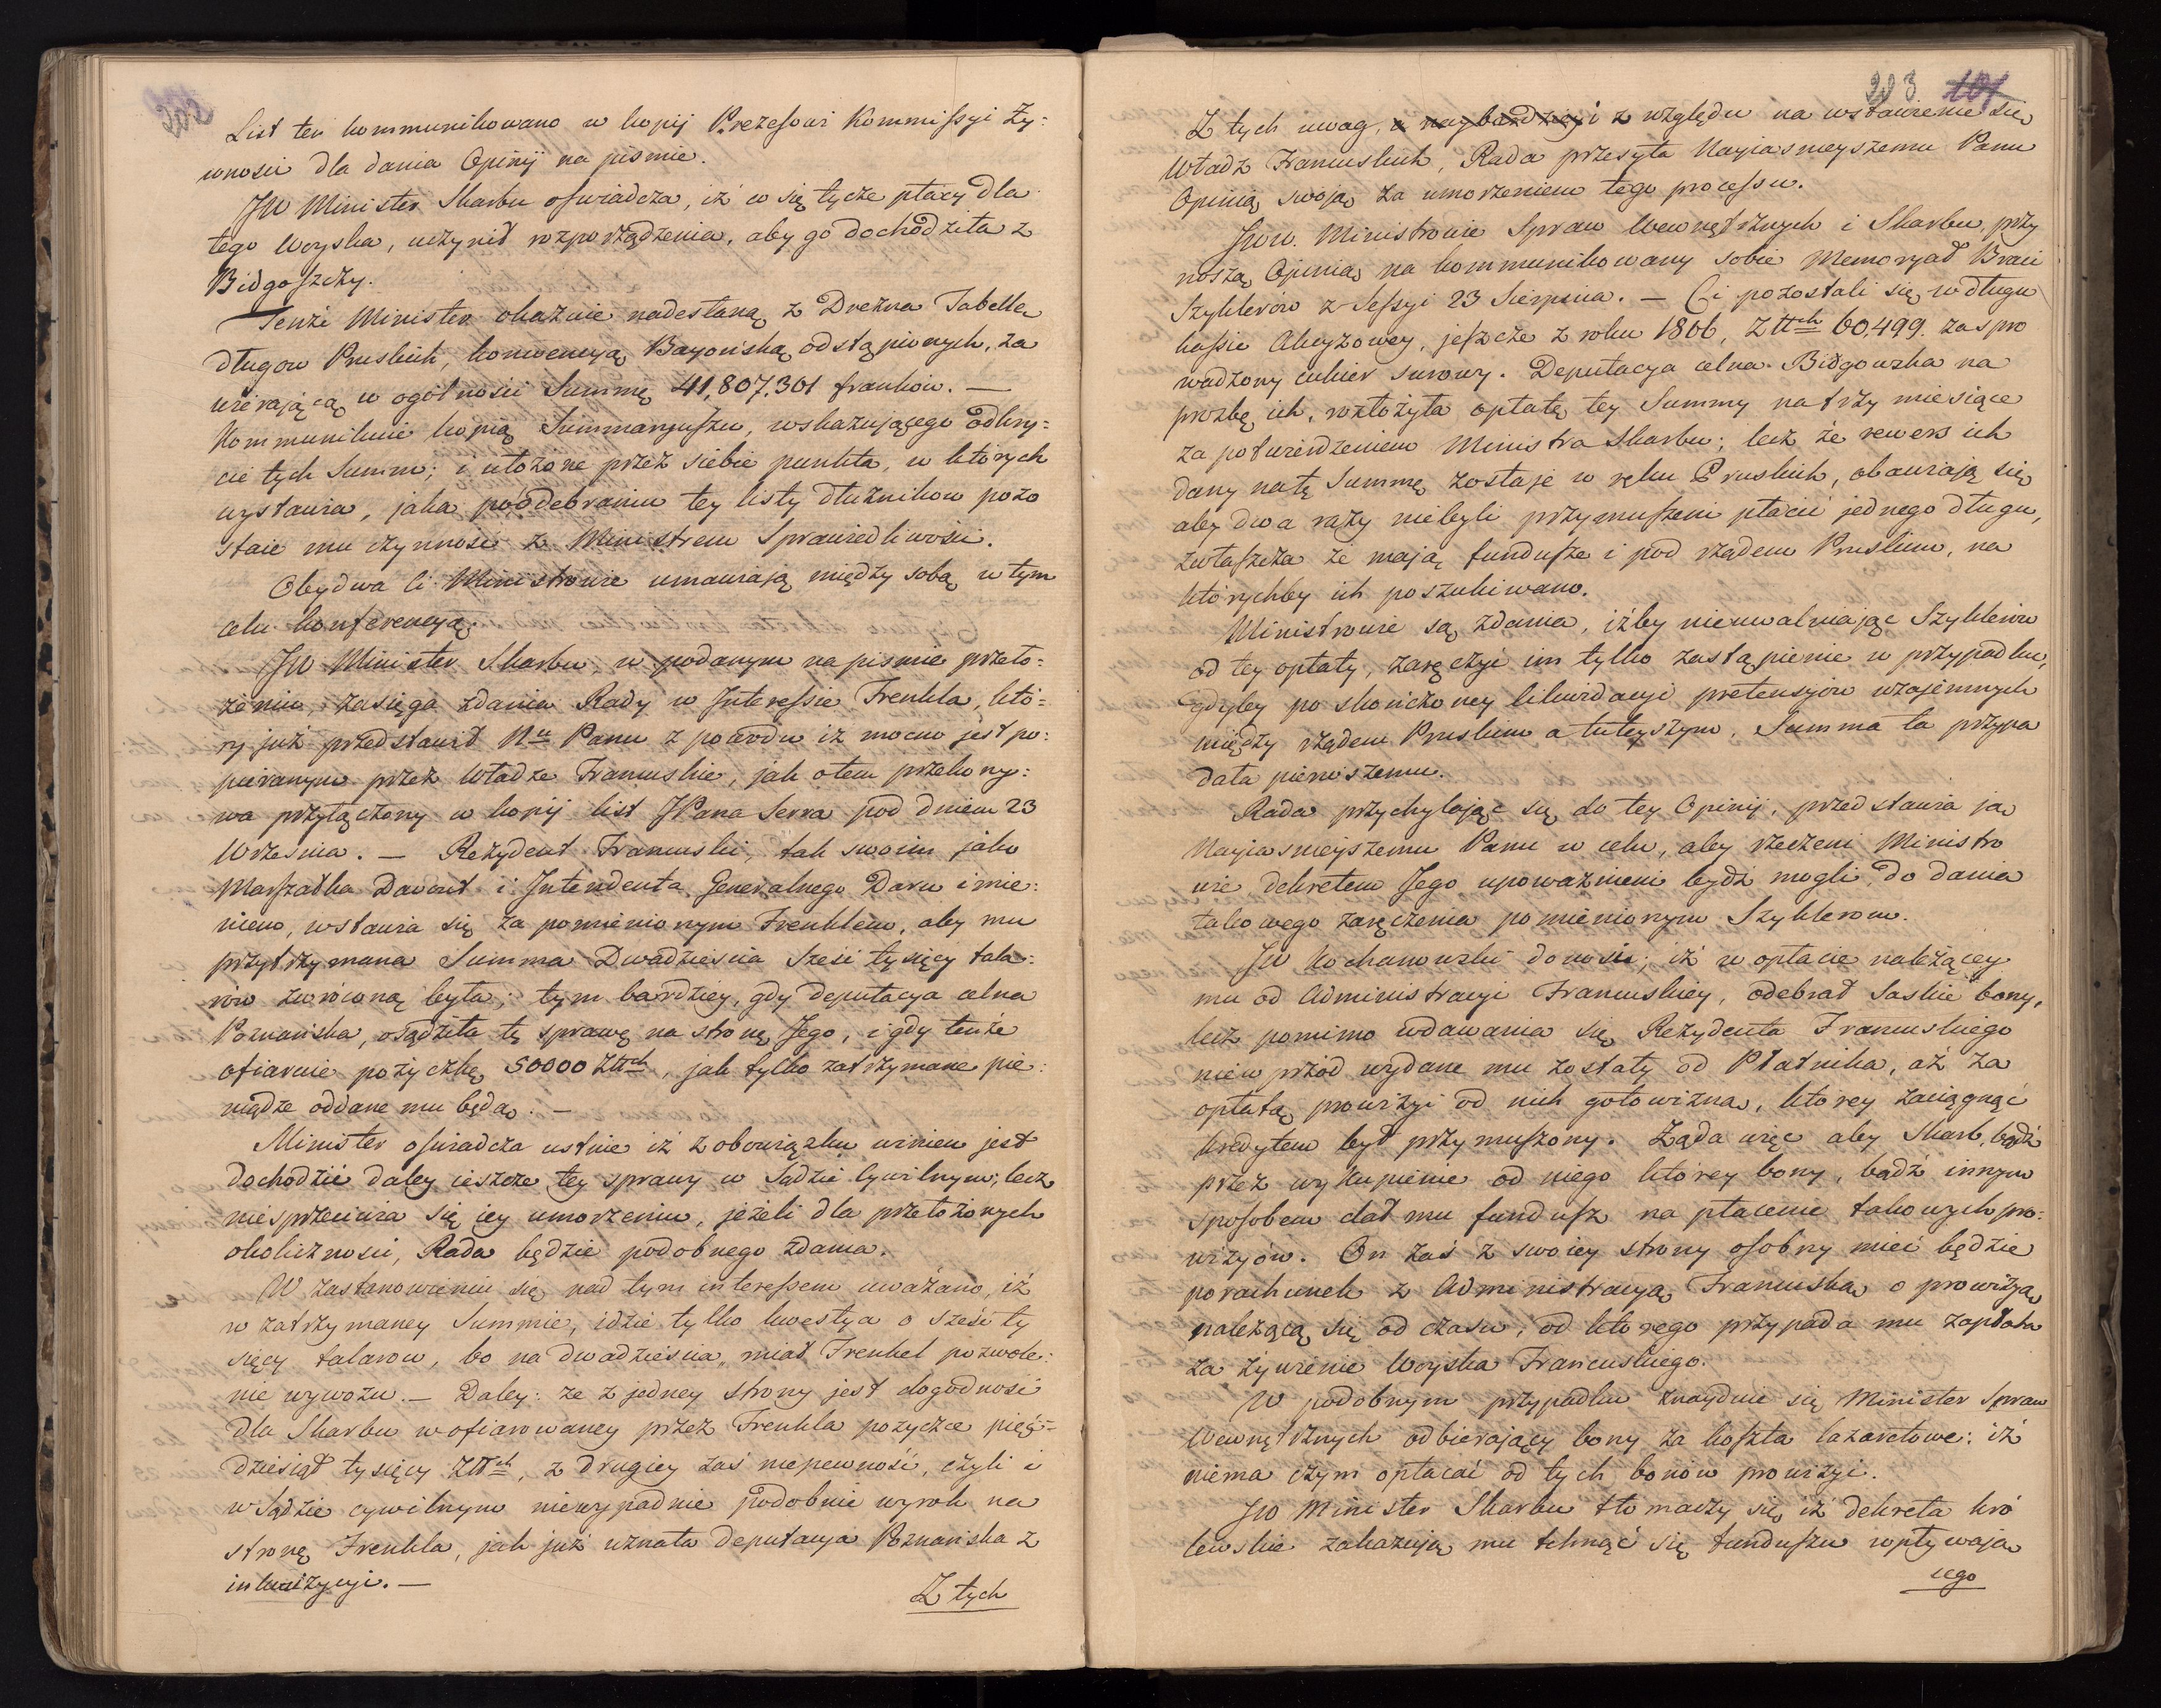 202
List ten kommunikowano w kopij Prezesowi Kommissyi Ży:
wnosci dla dania Opinij na pismie.
JW Minister Skarbu oswiadcza, iż co się tycze płacy dla
tego Woyska, uczynił rozporządzenia, aby go dochodziła z
Bidgoszczy.
Tenże Minister okazuie nadesłaną z Drezna Tabellę
długow Pruskich, konwencyą Bayońską odstąpionych, za
wierającą w ogólnosci Summę 41,807.301 franków. —
Kommunikuie kopią Summaryuszu, wskazującego odkry:
cie tych Summ; i ułożone przez siebie punkta, w których
wystawia, jaka po odebraniu tey listy dłużnikow pozo
staie mu czynnosc z Ministrem Sprawiedliwosci.
Obydwa ci Ministrowie umawiają między sobą w tym
celu konferencyą.
JW Minister Skarbu w podanym na pismie przeło:
żeniu, zasięga zdania Rady w Interessie Frenkla, któ:
ry już przedstawił Nu Panu z powodu iż mocno jest po:
pieranym przez Władze Francuskie, jak o tem przekony:
wa przyłączony w kopij list JPana Serra pod dniem 23
Września. — Rezydent Francuski, tak swoim jako
Marszałka Davout i Intendenta Generalnego Daru imie:
niem, wstawia się za pomienionym Frenklem, aby mu
przytrzymana Summa Dwadziescia Szesć tysięcy tala:
rów zwróconą była; tym bardziey, gdy deputacya celna
Poznańska, osądziła tę sprawę na stronę Jego, i gdy tenże
ofiaruie pożyczkę 50000 Złłch, jak tylko zatrzymane pie:
niądze oddane mu będą. —
Minister oswiadcza ustnie iż z obowiązku winien jest
dochodzić daley ieszcze tey sprawy w Sądzie Cywilnym; lecz
niesprzeciwia się iey umorzeniu, jeżeli dla przełożonych
okolicznosci, Rada będzie podobnego zdania.
W zastanowieniu się nad tym interessem uważano, iż
w zatrzymaney Summie, idzie tylko kwestya o szesć ty
sięcy talarow, bo na dwadziescia, miał Frenkel pozwole:
nie wywozu. — Daley: że z jedney strony jest dogodnosć
dla Skarbu w ofiarowaney przez Frenkla pozyczce pięć=
dziesiąt tysięcy Złłch, z drugiey zaś niepewnosć, czyli i
w Sądzie cywilnym niewypadnie podobnie wyrok na
stronę Frenkla, jak już uznała deputacya Poznańska z
inkwizycyi. —
Z tych
203 101
Z tych uwag, a naybardziey i z względu na wstawienie się
Władz Francuskich, Rada przesyła Nayiasnieyszemu Panu
Opinią swoją za umorzeniem tego processu.
JWW. Ministrowie Spraw Wewnętrznych i Skarbu, przy
noszą Opinią na kommunikowany sobie Memoryał Braci
Szyklerów z Sessyi 23 Sierpnia. — Ci pozostali się w długu
kassie Akcyzowey, jeszcze z roku 1806, Złłch 60,499. za spro
wadzony cukier surowy. Deputacya celna Bidgowska na
prozbę ich, rozłożyła opłatę tey Summy na trzy miesiące
za potwierdzeniem Ministra Skarbu; lecz że rewers ich
dany na tę Summę zostaje w ręku Pruskich, obawiają się
aby dwa razy niebyli przymuszeni płacić jednego długu,
zwłaszcza że mają fundusze i pod rządem Pruskim, na
którychby ich poszukiwano.
Ministrowie są zdania, iżby nieuwalniając Szyklerów
od tey opłaty, zaręczyć im tylko zastąpienie w przypadku,
gdyby po skończoney likwidacyi pretensyów wzajemnych
między rządem Pruskim a tuteyszym, Summa ta przypa
dała pierwszemu.
Rada przychylając się do tey Opinij, przedstawia ją
Nayiasnieyszemu Panu w celu, aby rzeczeni Ministro
wie dekretem Jego upoważnieni bydź mogli do dania
takowego zaręczenia pomienionym Szyklerom.
JW Kochanowski donosi; iż w opłacie należącey
mu od Administracyi Francuskiey, odebrał Saskie bony,
lecz pomimo wdawania się Rezydenta Francuskiego
niewprzód wydane mu zostały od Płatnika, aż za
opłatą prowizyi od nich gotowizną, którey zaciągnąć
kredytem był przymuszony. Żąda więc aby Skarb, bądź
przez wykupienie od niego którey bony, bądź innym
sposobem dał mu fundusz na płacenie takowych pro:
wizyów. On zaś z swoiey strony osobny mieć będzie
porachunek z Administracyą Francuską o prowizyą
należącą się od czasu, od którego przypada mu zapłata
za żywienie Woyska Francuskiego.
W podobnym przypadku znayduie się Minister Spraw
Wewnętrznych odbierający bony za koszta lazaretowe: iż
niema czym opłacać od tych bonów prowizyi.
JW Minister Skarbu tłomaczy się iż dekreta kró
lewskie zakazują mu tchnąć się funduszu wpływają
cego